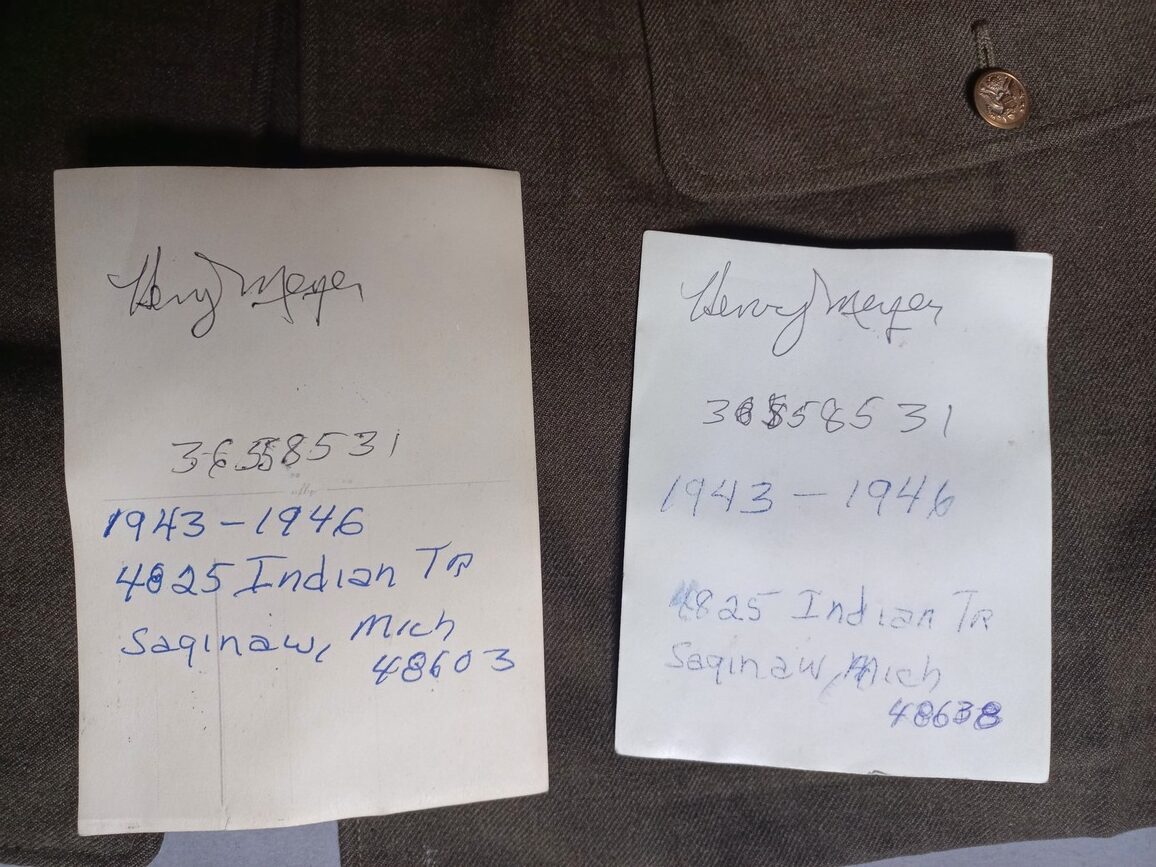 Henry Meyer
36558531
1943 - 1946
4825 Indian TR
Saginaw, Mich
48603
Henry Meyer
36558531
1943 - 1946
4825 Indian TR
Saginaw, Mich
48638